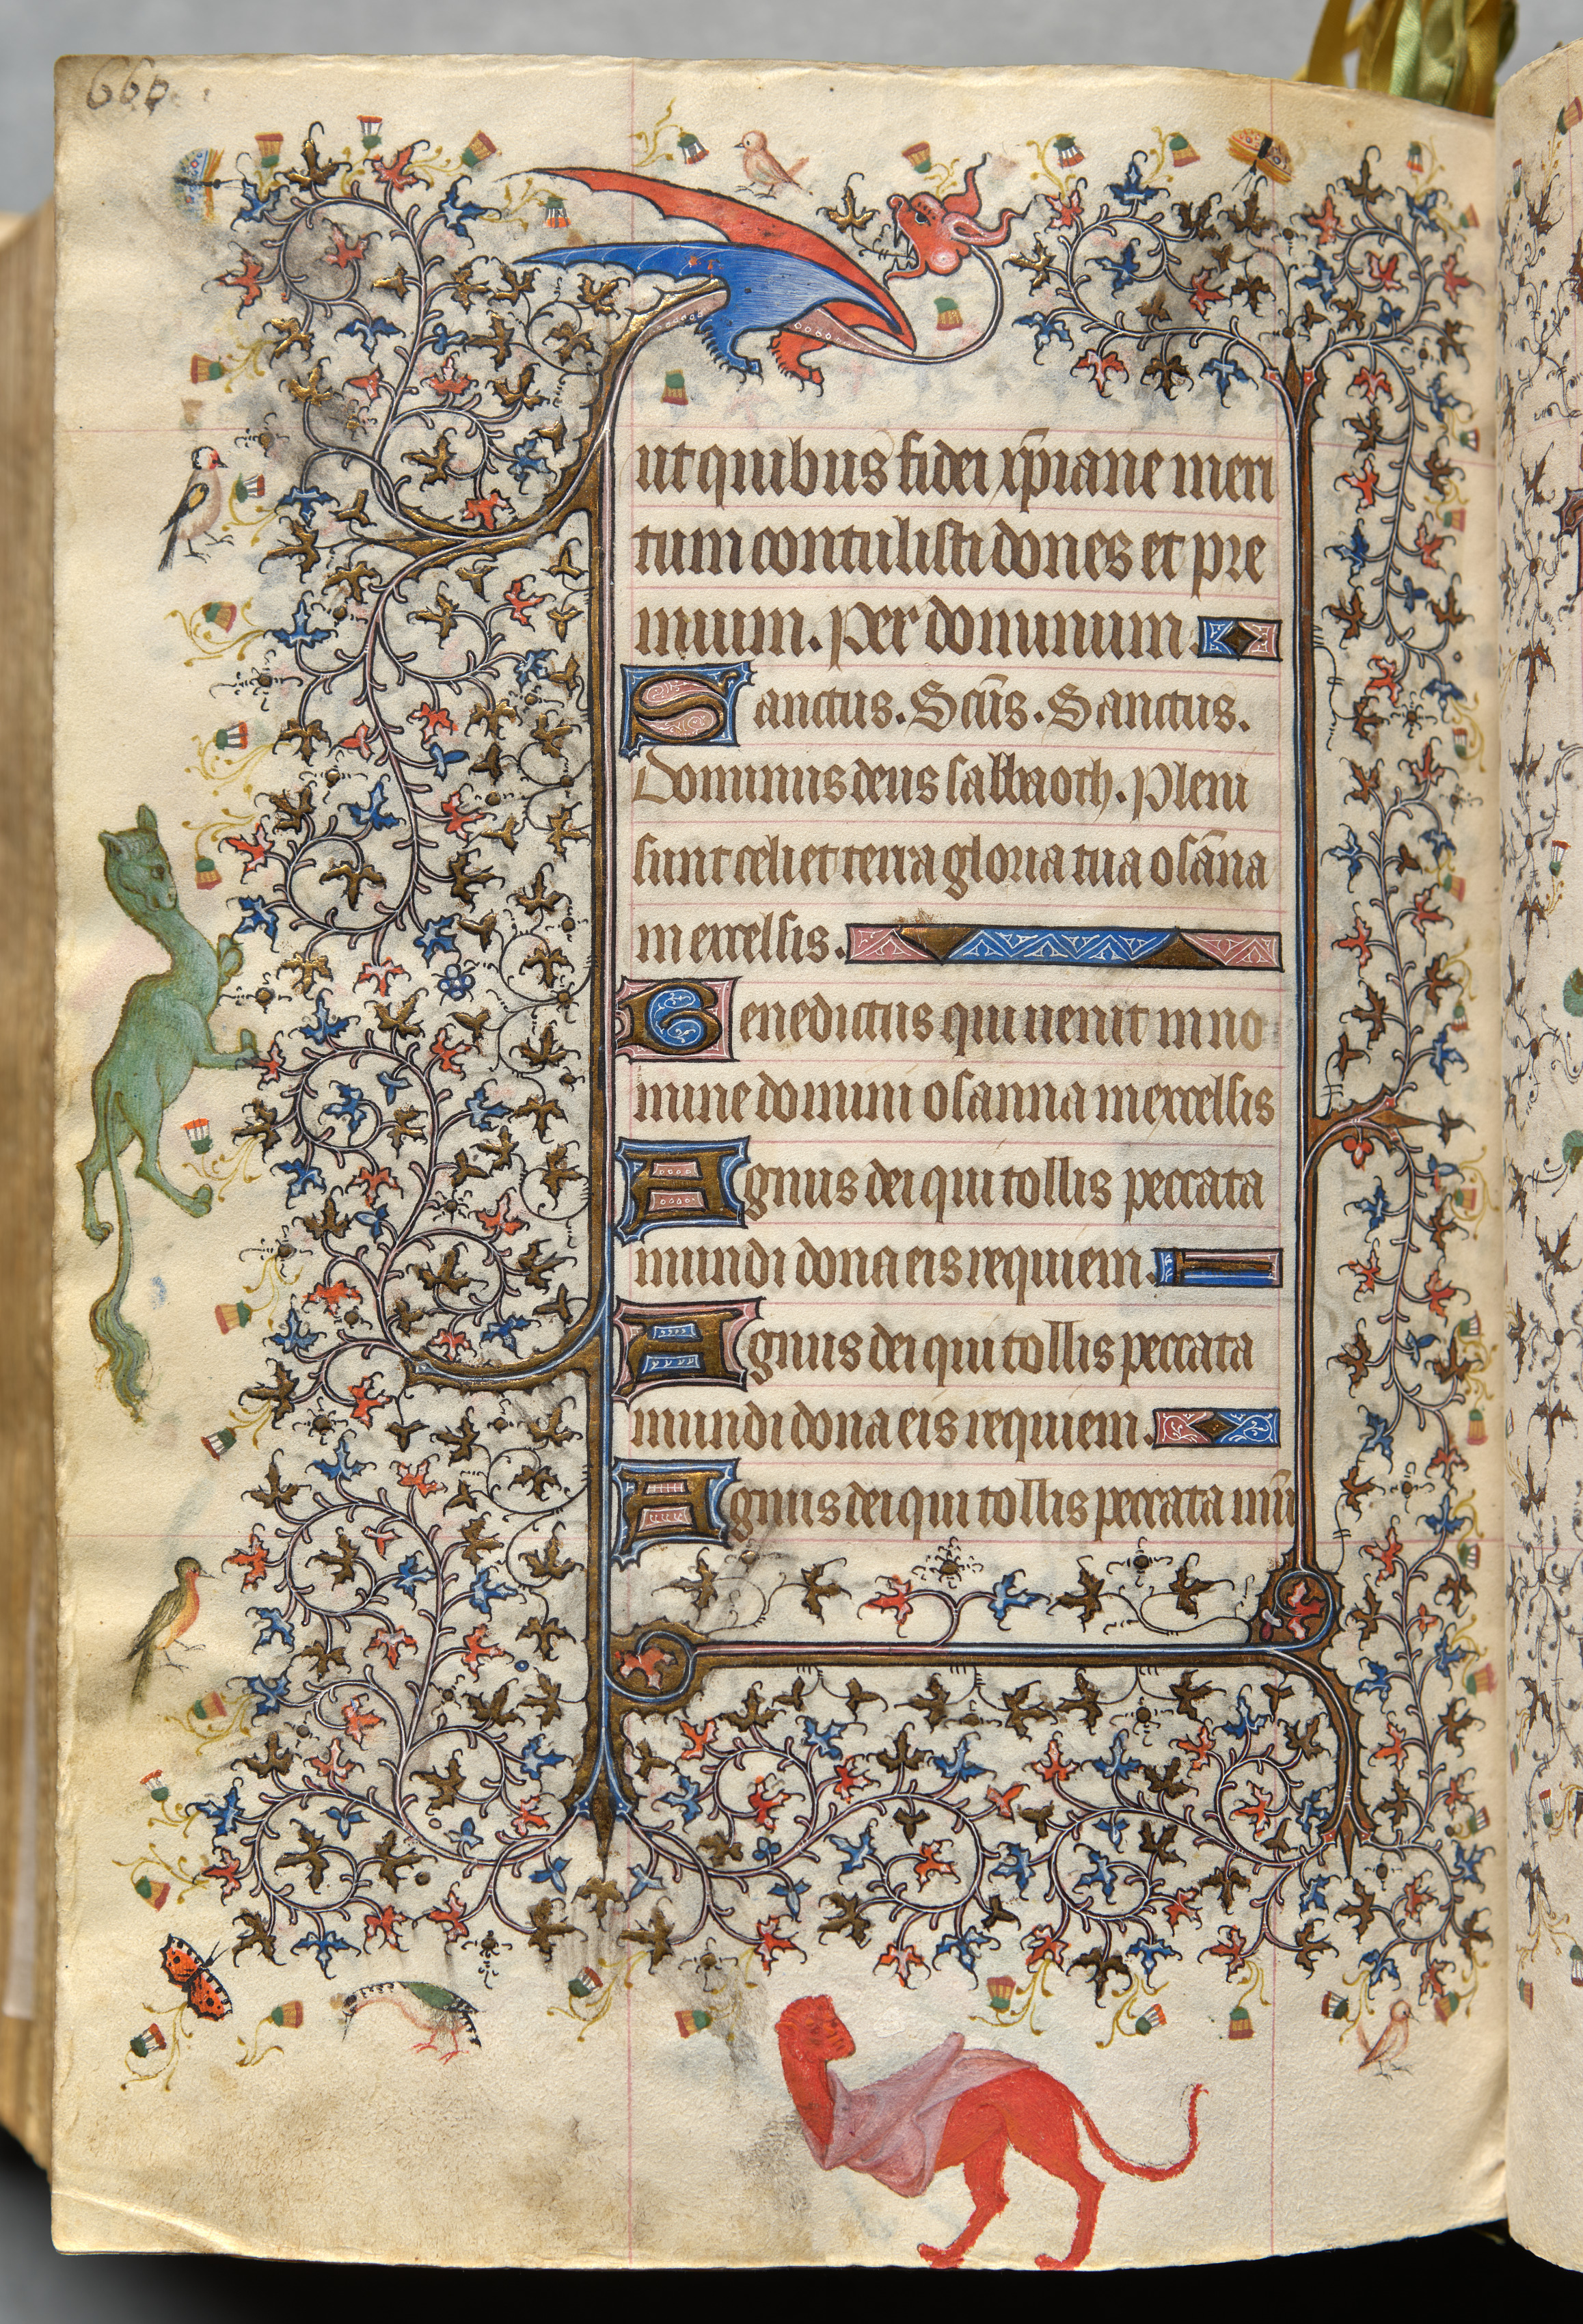 660
ut quibus fidei xp̄iane meri
tum contulisti dones et pre
mium. Per dominum.
Sanctus. Sc̄us. Sanctus.
Dominus deus sabbaoth. Pleni
sunt celi et terra gloria tua osāna
in excelsis.
Benedictus qui uenit in no
mine domini osanna in excelsis
Agnus dei qui tollis peccata
mundi dona eis requiem.
Agnus dei qui tollis peccata
mundi dona eis requiem.
Agnus dei qui tollis peccata mū